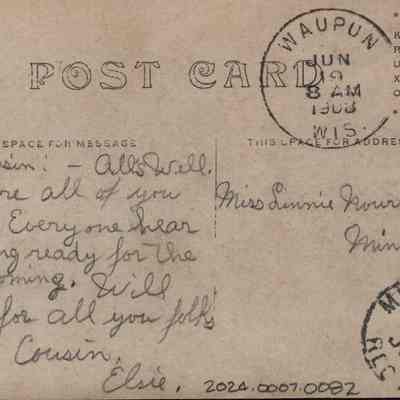 POST CARD
WAUPUN
JUN
19
8 AM
1908
WIS.
SPACE FOR MESSAGE
THIS SPACE FOR ADDRES
usin! - All's Well.
are all of you
Everyone hear
ng ready for the
oming. Will
for all you folks
Cousin,
Elsie.
Miss Linnie
Min
2024.0007.0082